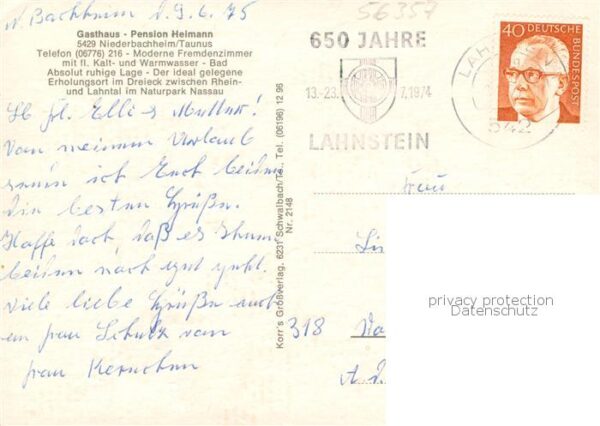 N. Bachheim d. 9.6.75
56357
Gasthaus - Pension Heimann
5429 Niederbachheim/Taunus
Telefon (06776) 216 - Moderne Fremdenzimmer
mit fl. Kalt- und Warmwasser - Bad
Absolut ruhige Lage - Der ideal gelegene
Erholungsort im Dreieck zwischen Rhein-
und Lahntal im Naturpark Nassau
Lb. Elli u. Mutter!
Von meinem Urlaub
ich Euch beiden
die besten Grüße.
Hoffe doch, daß es Ihnen
beiden noch gut geht.
Viele liebe Grüße auch
an Frau Schulz von
Frau
Korr's Großverlag, 6231 Schwalbach/Ts., Tel. (06196) 12 96
Nr. 2148
650 JAHRE
13.-23. 7.1974
LAHNSTEIN
LAHN
542
40
DEUTSCHE
BUNDESPOST
Frau
318
privacy protection
Datenschutz